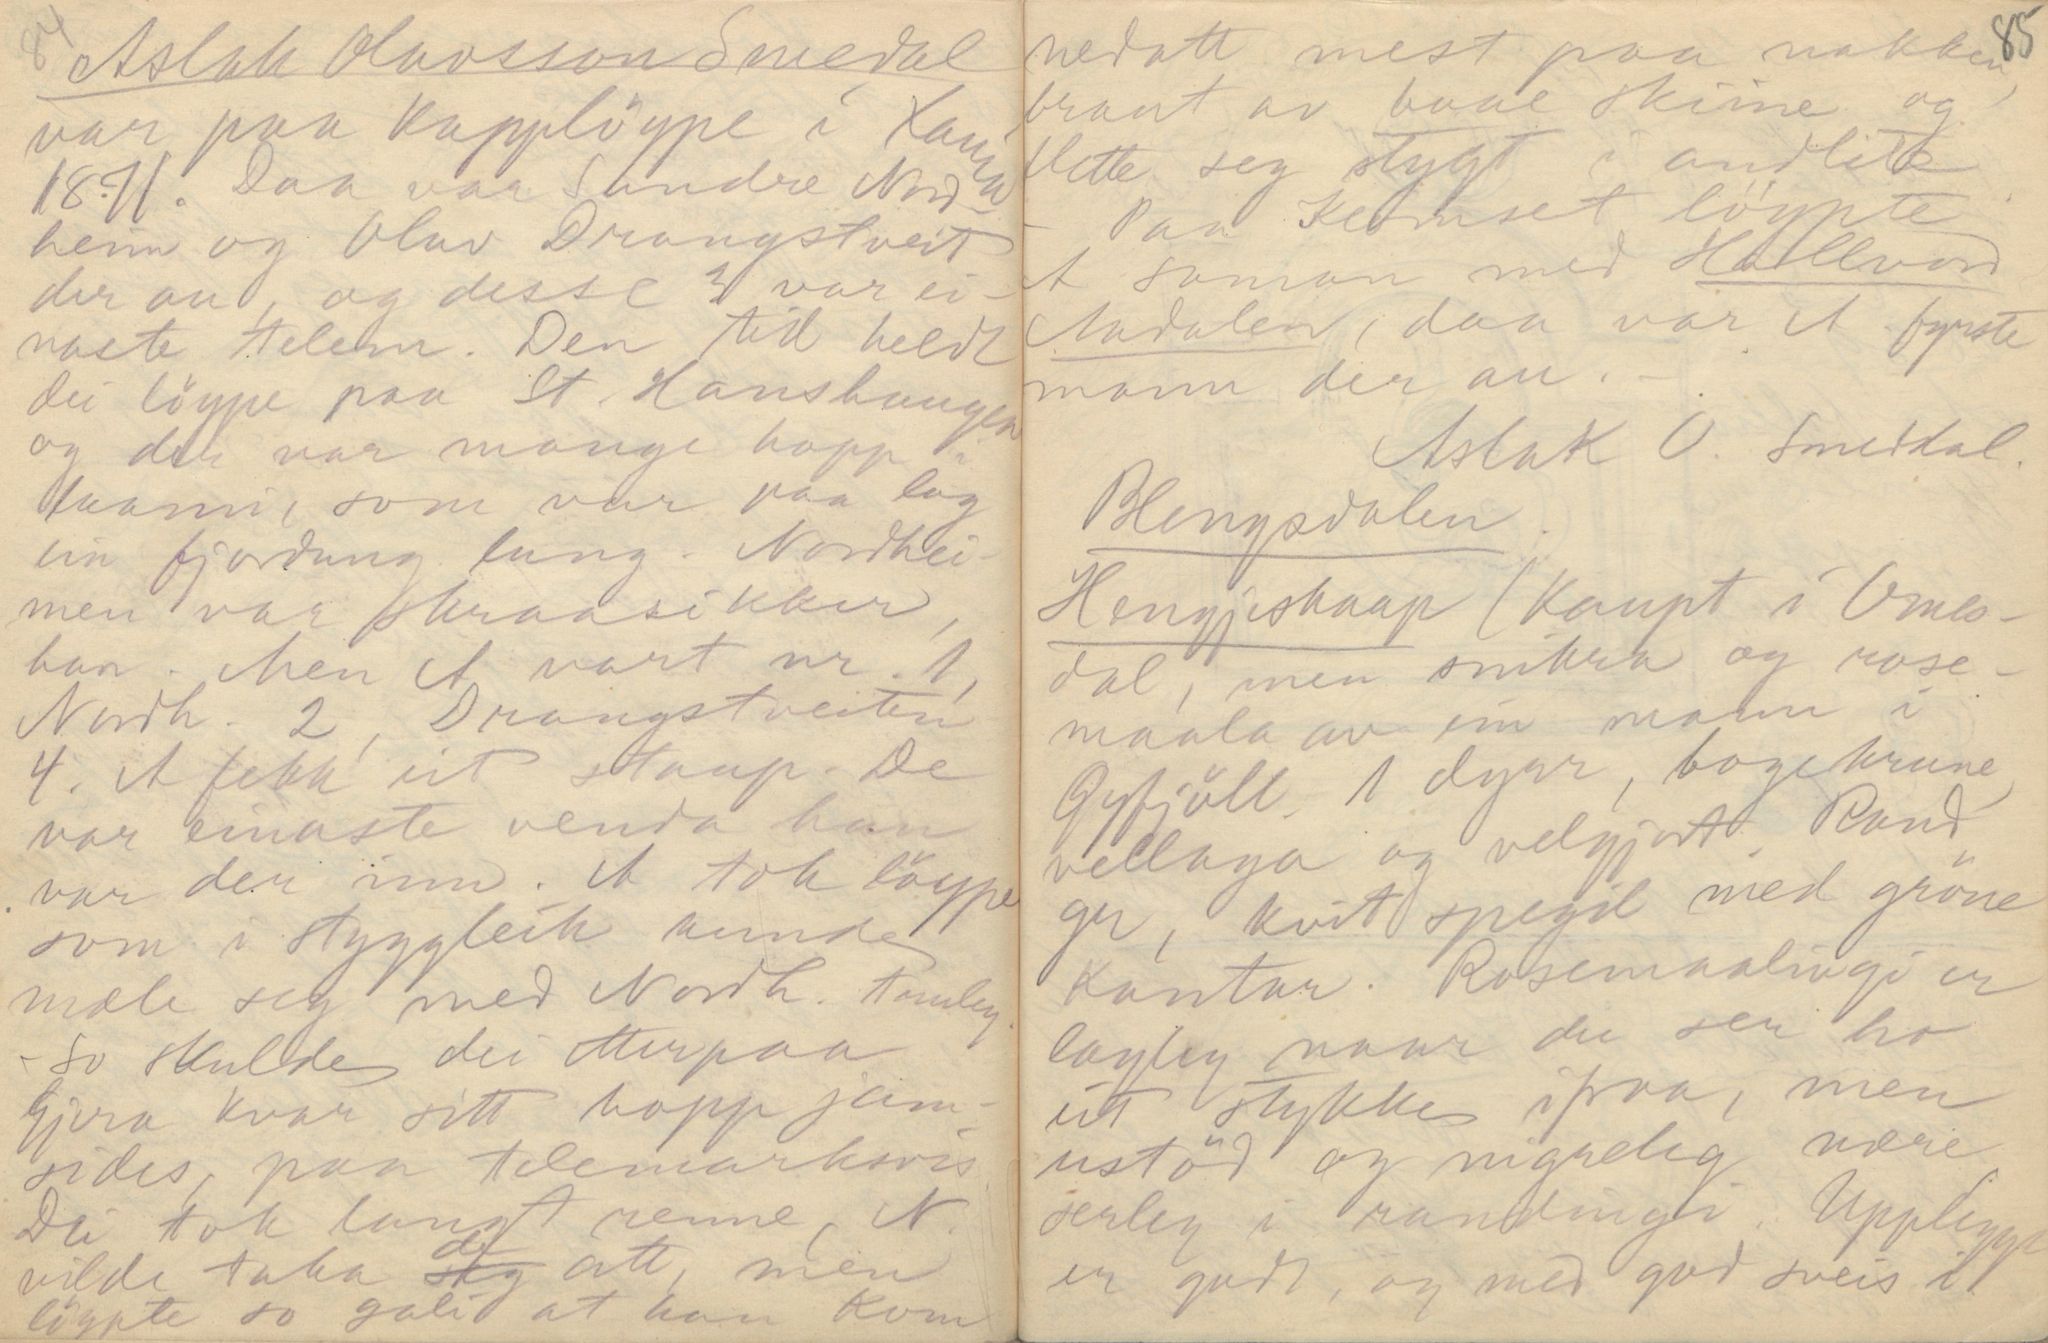 84
Aslak Olavsson Smedal
var paa Kapplöype i Xania
1871. Daa var Sondre Nord-
heim og Olav Drangstveit
der au, og desse 3 var ei-
naste telem. Den tid heldt
dei löype paa St. Hanshaugen
og der var mange hopp i
laami, som var paa lag
ein fjordung lang. Nordhei-
men var skraasikker,
han. Men A vart nr. 1,
Nordh. 2, Drangstveiten
4. A fekk eit staup. De
var einaste venda han
var der inn. A tok löype
som i styggleik kunde
mæle seg med Nordh. tamleg.
- So skulde dei etterpaa
gjera kvar sitt hopp jam-
sides, paa telemarksvis.
Dei tok langt renne, N.
vilde taka de att, men
löypte so gali at han kom
85
nedatt mest paa nakken,
braut av baae skiine og
flette seg stygt i andlite
- Paa Kemset löypte
A saman med Hallvard
Aadalen, daa var A fyrste
mann der au. -
Aslak O. Smedal.
Blengsdalen.
Hengjeskaap (Kaupt i Omes-
dal, men snikra og rose-
maala av ein mann i
Gyfjöll. 1 dyar, bogekrune,
vellaga og velgjort. Rand
ger, kvit spegil med gröne
kantar. Rosemaalingi er
lagleg naar du ser ho
eit stykke ifraa, men
ustöd og nigreleg nære
serleg i randingi. Upplegge
er godt, og med god sveis i